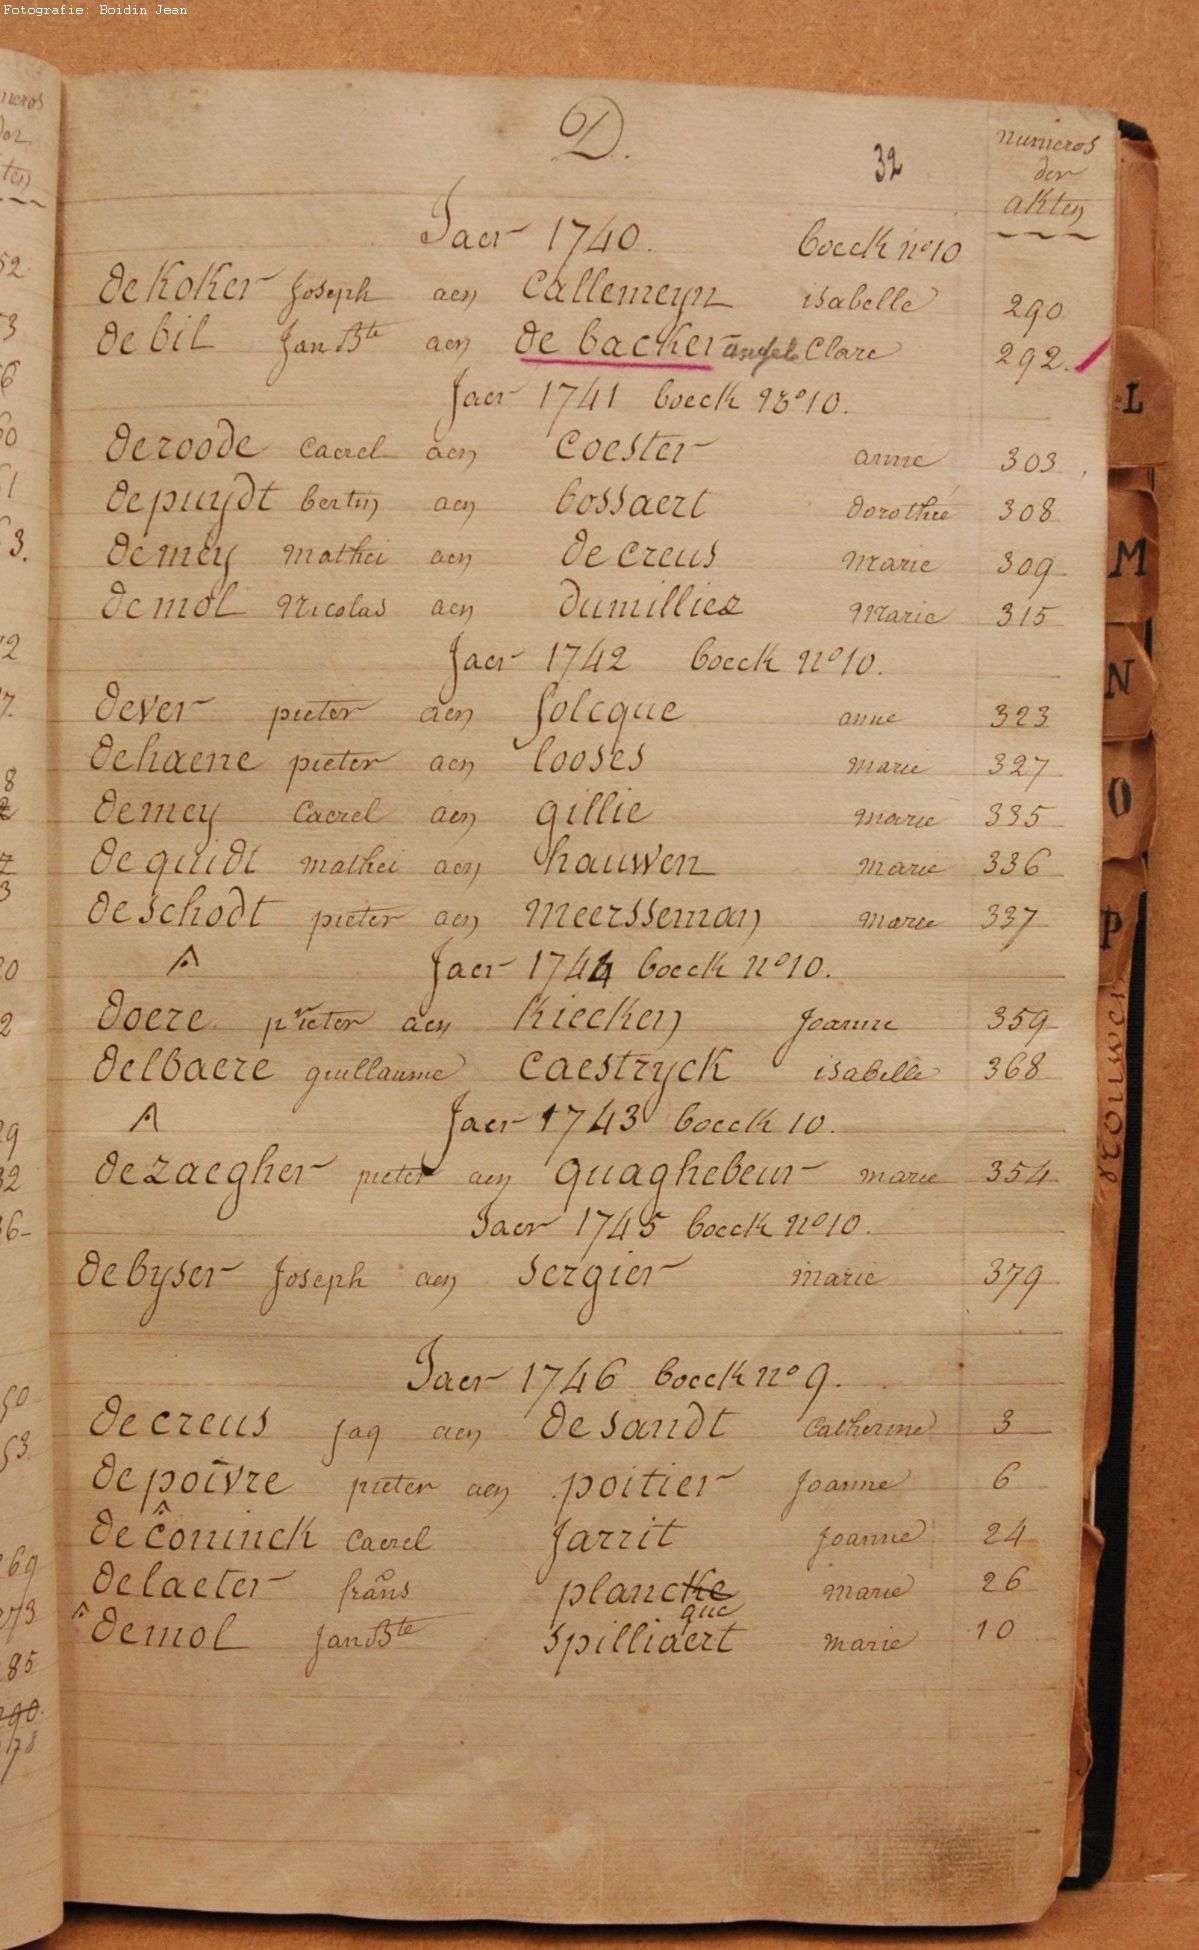 Fotografie: Boidin Jean
D.
32
numeros
der
akten
Jaer 1740. boeck nº 10
de Koker Joseph aen Callemeyn isabelle 290
de bil Jan Bte aen de backer Clare 292.
Jaer 1741 boeck Nº 10.
de roode Caerel aen Coester anne 303
de puydt bertin aen bossaert dorothée 308
de mey mathei aen de creus marie 309
de mol Nicolas aen dumilliez Marie 315
Jaer 1742 boeck nº 10.
de ver pieter aen folcque anne 323
de haene pieter aen looses marie 327
de mey Caerel aen gillie marie 335
de quidt mathei aen hauwen marie 336
de schodt pieter aen meersseman marie 337
Jaer 1744 boeck nº 10.
doere pieter aen Kiecken Joanne 359
delbaere guillaume Caestryck isabelle 368
Jaer 1743 boeck 10.
de zaegher pieter aen quaghebeur marie 354
Jaer 1745 boeck nº 10.
de byser Joseph aen sergier marie 379
Jaer 1746 boeck nº 9.
de creus Jaq aen de sandt Catherine 3
de poivre pieter aen poitier Joanne 6
de Coninck Caerel Jarrit Joanne 24
de laeter frans plancke marie 26
que
de mol Jan Bte spilliaert marie 10
L
M
N
O
P